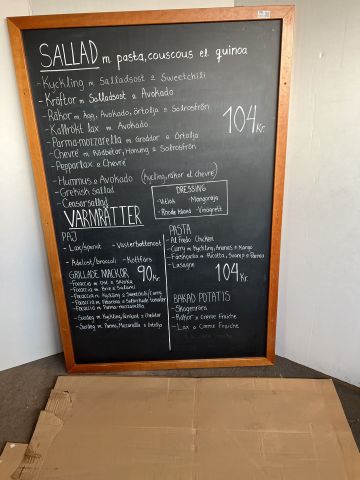 SALLAD m pasta, couscous el. quinoa
- Kyckling m Salladsost & Sweetchili
- Kräftor m Salladsost & Avokado
- Räkor m Ägg, Avokado, örtolja & Solrosfrön
- Kallrökt lax m Avokado
- Parma-mozzarella m Groddar & Örtolja
- Chevré m Rödbetor, Honung & Solrosfrön
- Pepparlax & Chevré
- Hummus & Avokado (kyckling, räkor el chevré)
- Grekisk sallad
- Ceasarsallad
104 Kr
DRESSING
· Vitlök · Mangoraja
· Rhode Island · Vinägrett
VARMRÄTTER
PAJ
- Lax/spenat - Västerbottenost
- Ädelost/broccoli - Köttfärs
GRILLADE MACKOR 90 Kr
- Focaccia m Ost & Skinka
- Focaccia m Brie & Salami
- Focaccia m Kyckling & Sweetchili/Curry
- Focaccia m Mozzarella & Soltorkade tomater
- Focaccia m Parma-mozzarella
- Surdeg m Kyckling & Cheddar
- Surdeg m Parma, Mozzarella & Örtolja
PASTA
- Alfredo Chicken
- Curry m Kyckling, Ananas & Mango
- Färskpasta m Ricotta, Svamp & Parma
- Lasagne
104 Kr
BAKAD POTATIS
- Skagenröra
- Räkor & Creme Fraiche
- Lax & Creme Fraiche